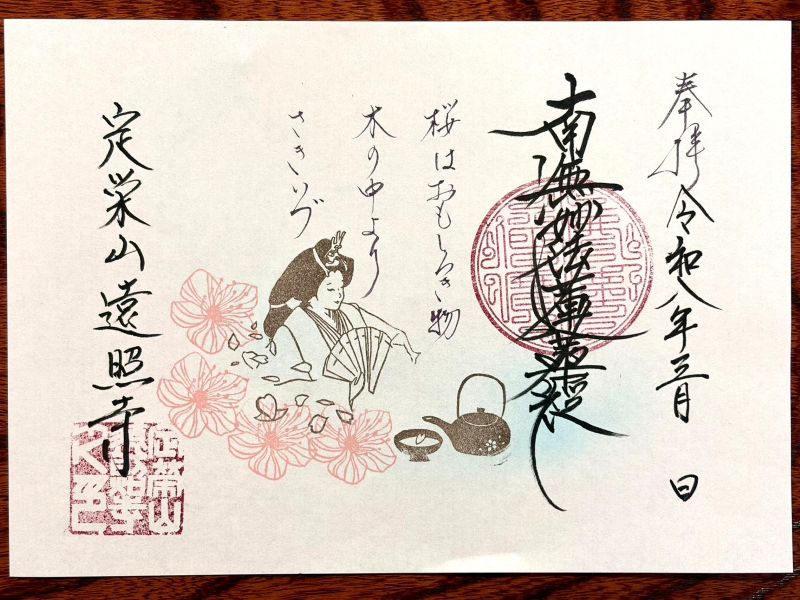 奉拝 令和八年三月 日
南無妙法蓮華経
桜はおもしろき物
木の中より
さきいづ
定栄山遠照寺